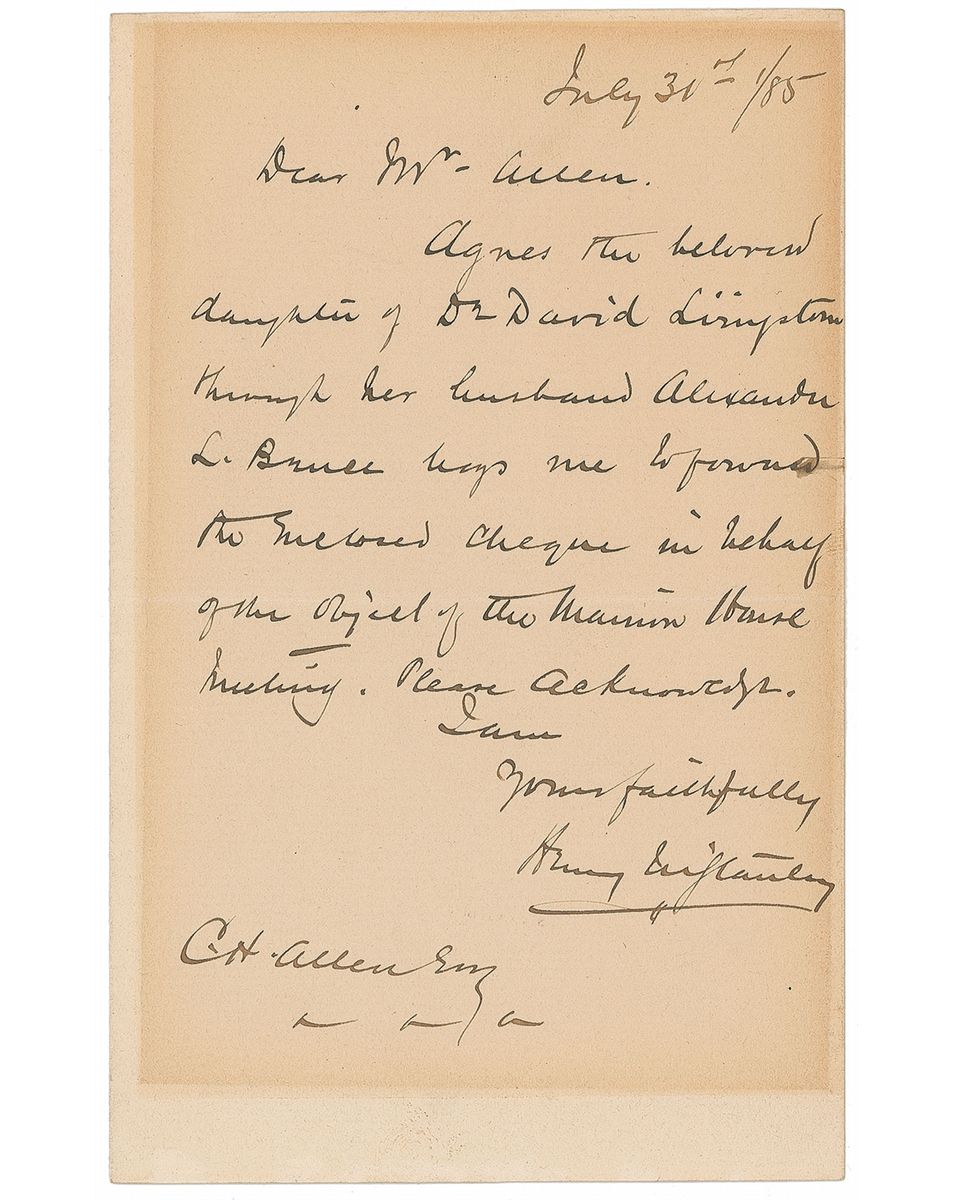 July 31st /85
Dear Mr. Allen.
Agnes the beloved
daughter of Dr David Livingstone
through her husband Alexander
L. Bruce begs me to forward
the Enclosed cheque in behalf
of the object of the Mansion House
Meeting. Please Acknowledge.
I am
Yours faithfully
Henry M Stanley
C. H. Allen Esq